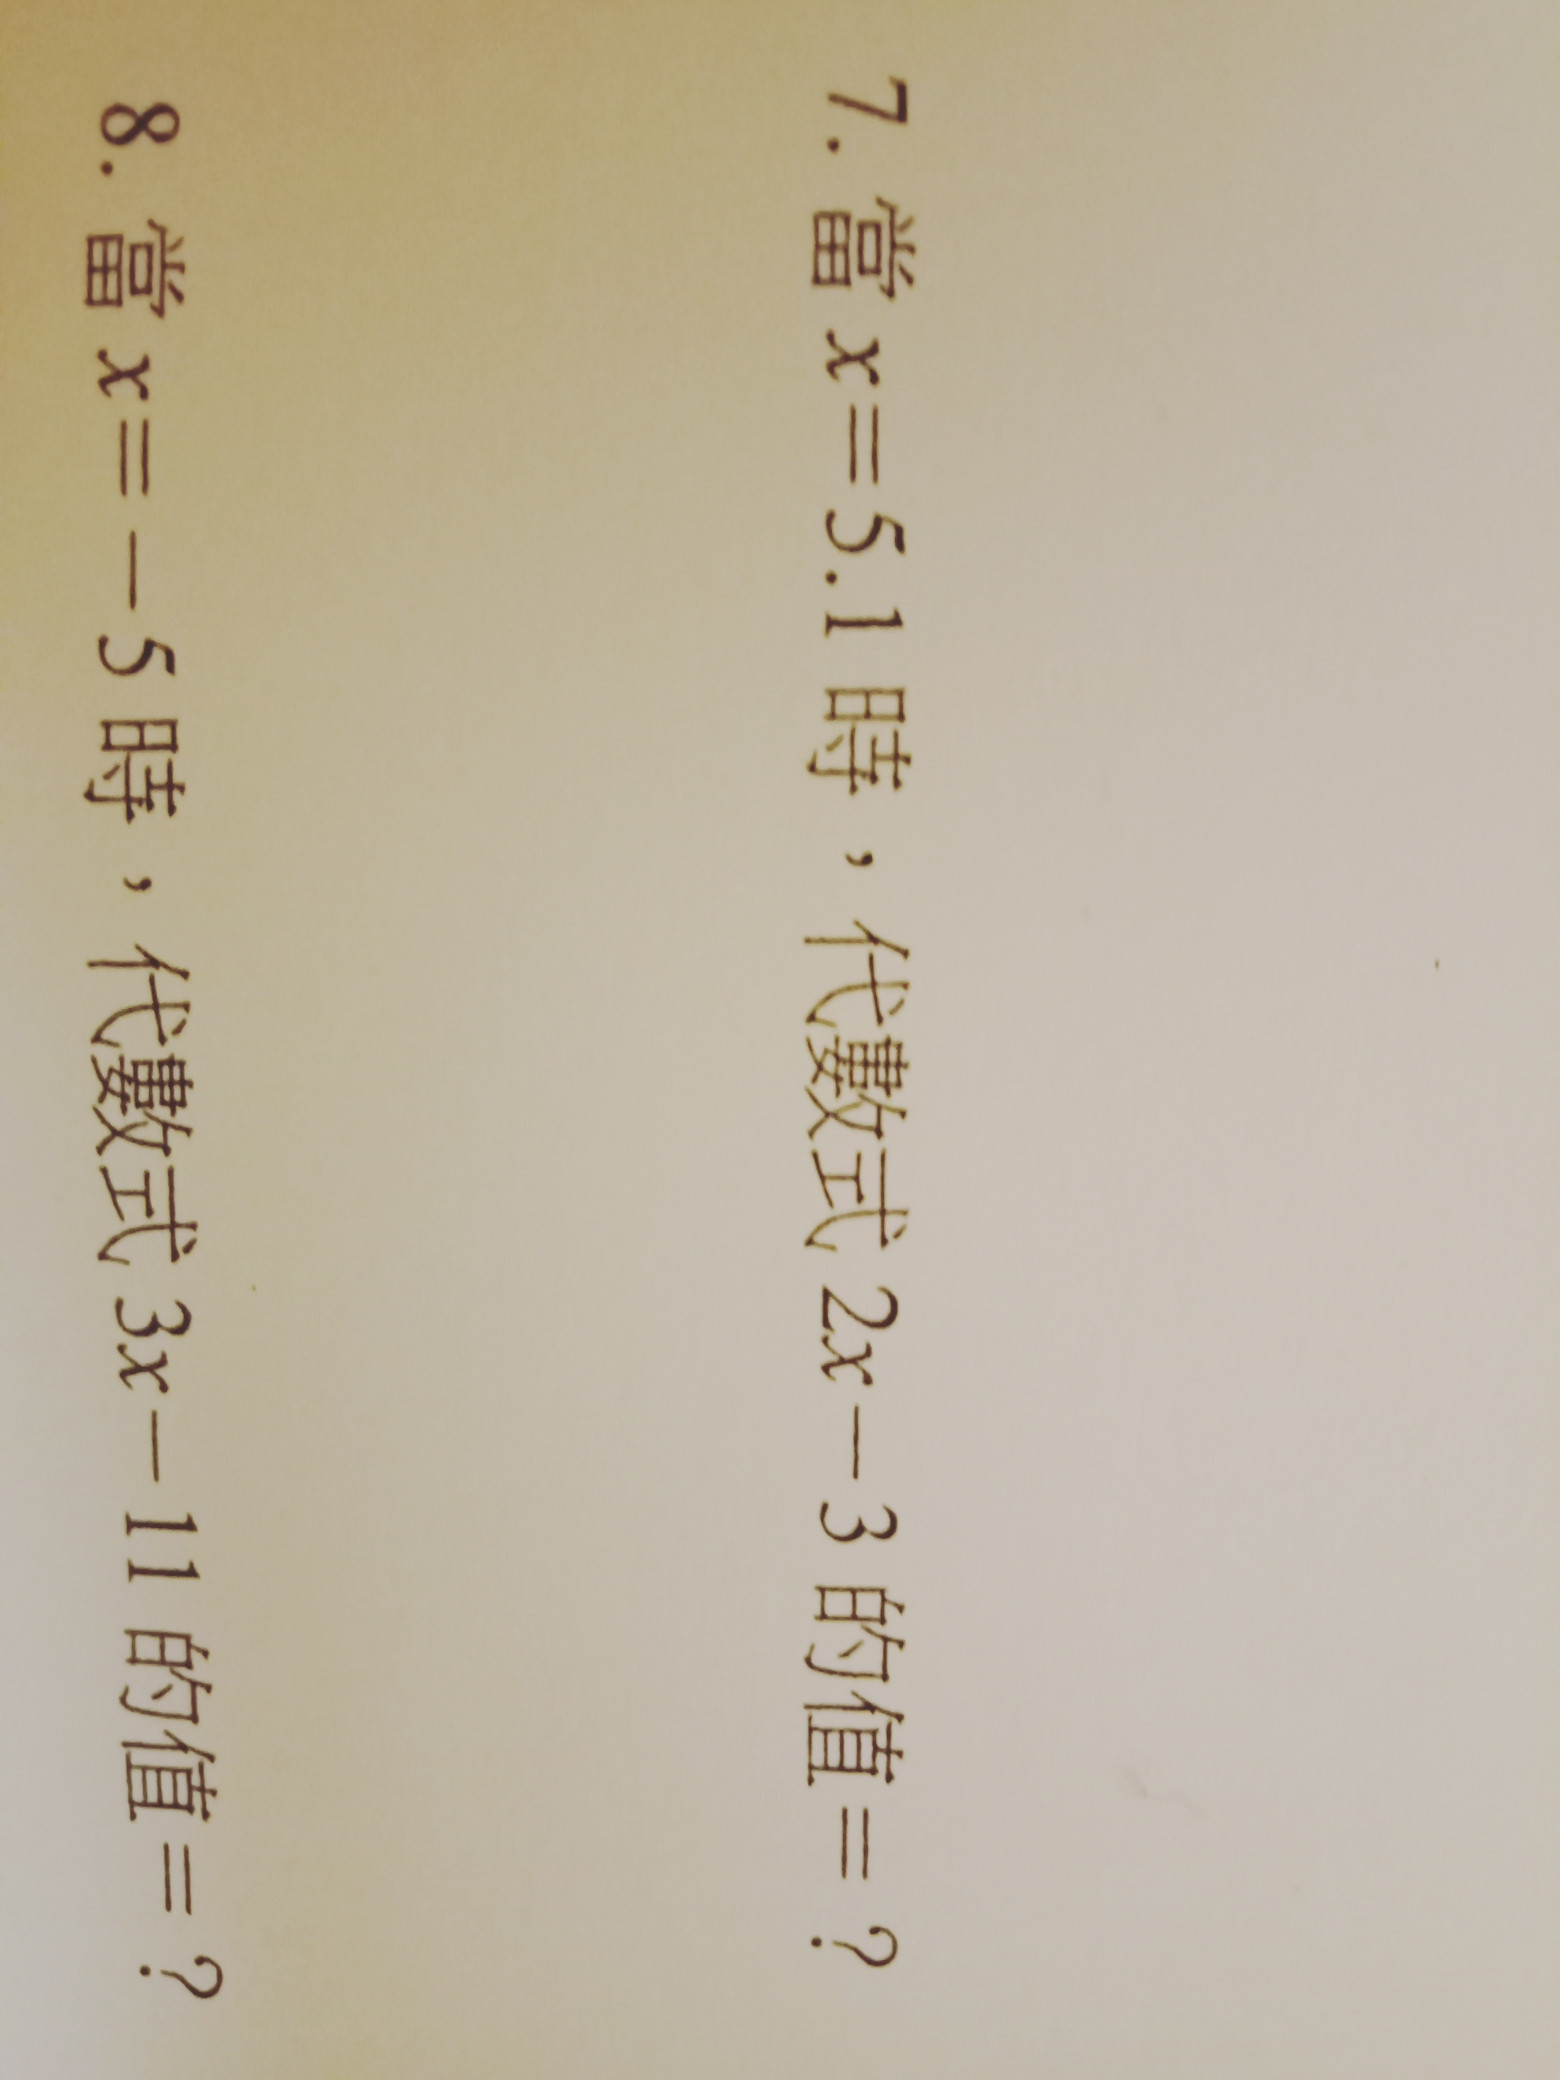 7. 當 x＝5.1 時，代數式 2x－3 的值＝？
8. 當 x＝－5 時，代數式 3x－11 的值＝？